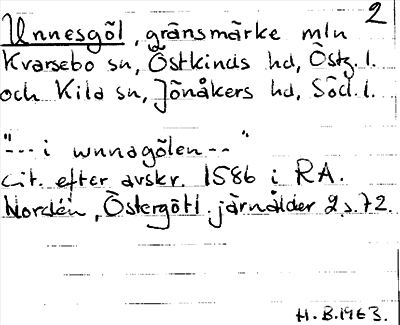 2
Unnesgöl, gränsmärke mln
Kvarsebo sn, Östkinds hd, Östg. l.
och Kila sn, Jönåkers hd, Söd. l.
"--- i wnnagölen--"
cit. efter avskr. 1586 i RA.
Nordén, Östergötl. järnålder 2, s. 72.
H. B. 1963.